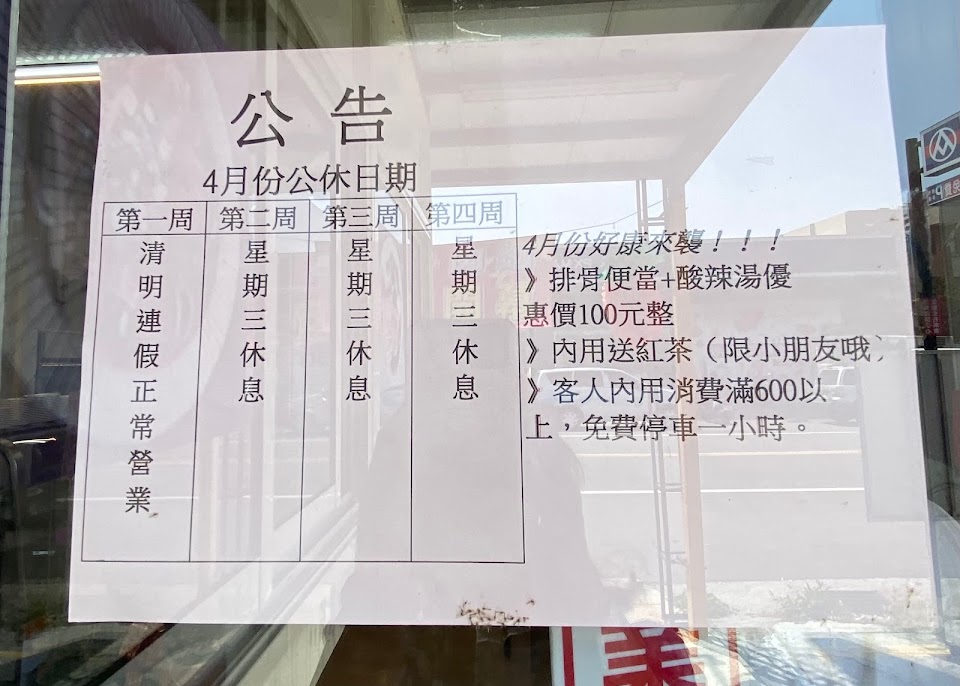 公告
4月份公休日期
第一周 第二周 第三周 第四周
清明連假正常營業
星期三休息
星期三休息
星期三休息
4月份好康來襲！！！
》排骨便當+酸辣湯優
惠價100元整
》內用送紅茶（限小朋友哦）
》客人內用消費滿600以
上，免費停車一小時。
業